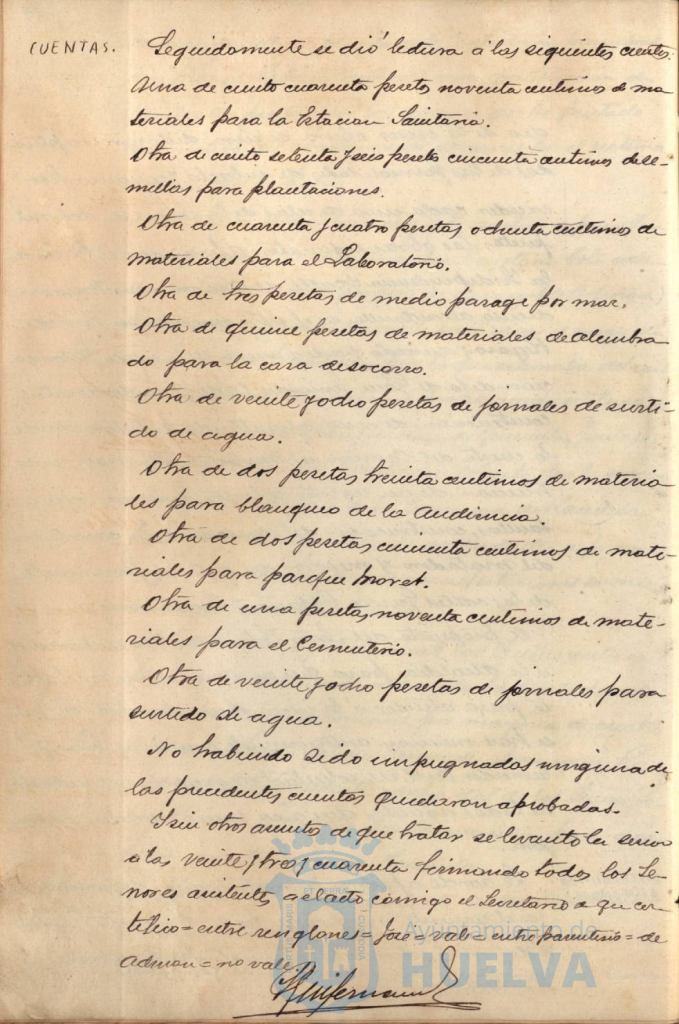 CUENTAS.
Seguidamente se dió lectura á las siguientes cuentas.
Una de ciento cuarenta pesetas noventa centimos de ma
teriales para la Estacion Sanitaria.
Otra de ciento setenta y seis pesetas cincuenta centimos de se-
millas para plantaciones.
Otra de cuarenta y cuatro pesetas ochenta centimos de
materiales para el Laboratorio.
Otra de tres pesetas de medio pasage por mar.
Otra de quince pesetas de materiales de alumbra
do para la casa de socorro.
Otra de veinte y ocho pesetas de jornales de surti-
do de agua.
Otra de dos pesetas treinta centimos de materia
les para blanqueo de la Audiencia.
Otra de dos pesetas cincuenta centimos de mate-
riales para parque Moret.
Otra de una peseta noventa centimos de mate-
riales para el Cementerio.
Otra de veinte y ocho pesetas de jornales para
surtido de agua.
No habiendo sido impugnadas ninguna de
las precedentes cuentas quedaron aprobadas.
Y sin otros asuntos de que tratar se levantó la sesion
á las veinte y tres y cuarenta firmando todos los Se-
ñores asistentes al acto comigo el Secretario de que cer
tifico = entre renglones = José = vale = entre parentesis = de
Admon = no vale.
Ayuntamiento de
HUELVA